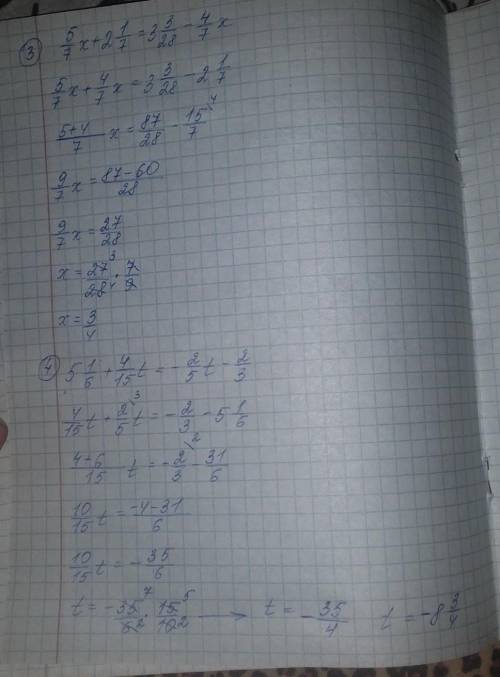 ③ 5/7 x + 2 1/7 = 3 3/28 - 4/7 x
5/7 x + 4/7 x = 3 3/28 - 2 1/7
5+4/7 x = 87/28 - 15/7 \4
9/7 x = 87-60/28
9/7 x = 27/28
x = 27 3/28 4 · 7/9
x = 3/4
④ 5 1/6 + 4/15 t = - 2/5 t - 2/3
4/15 t + 2/5 \3 t = - 2/3 - 5 1/6
4+6/15 t = - 2/3 \2 - 31/6
10/15 t = -4-31/6
10/15 t = - 35/6
t = -35 7/6 2 · 15 5/10 2 → t = - 35/4 t = -8 3/4